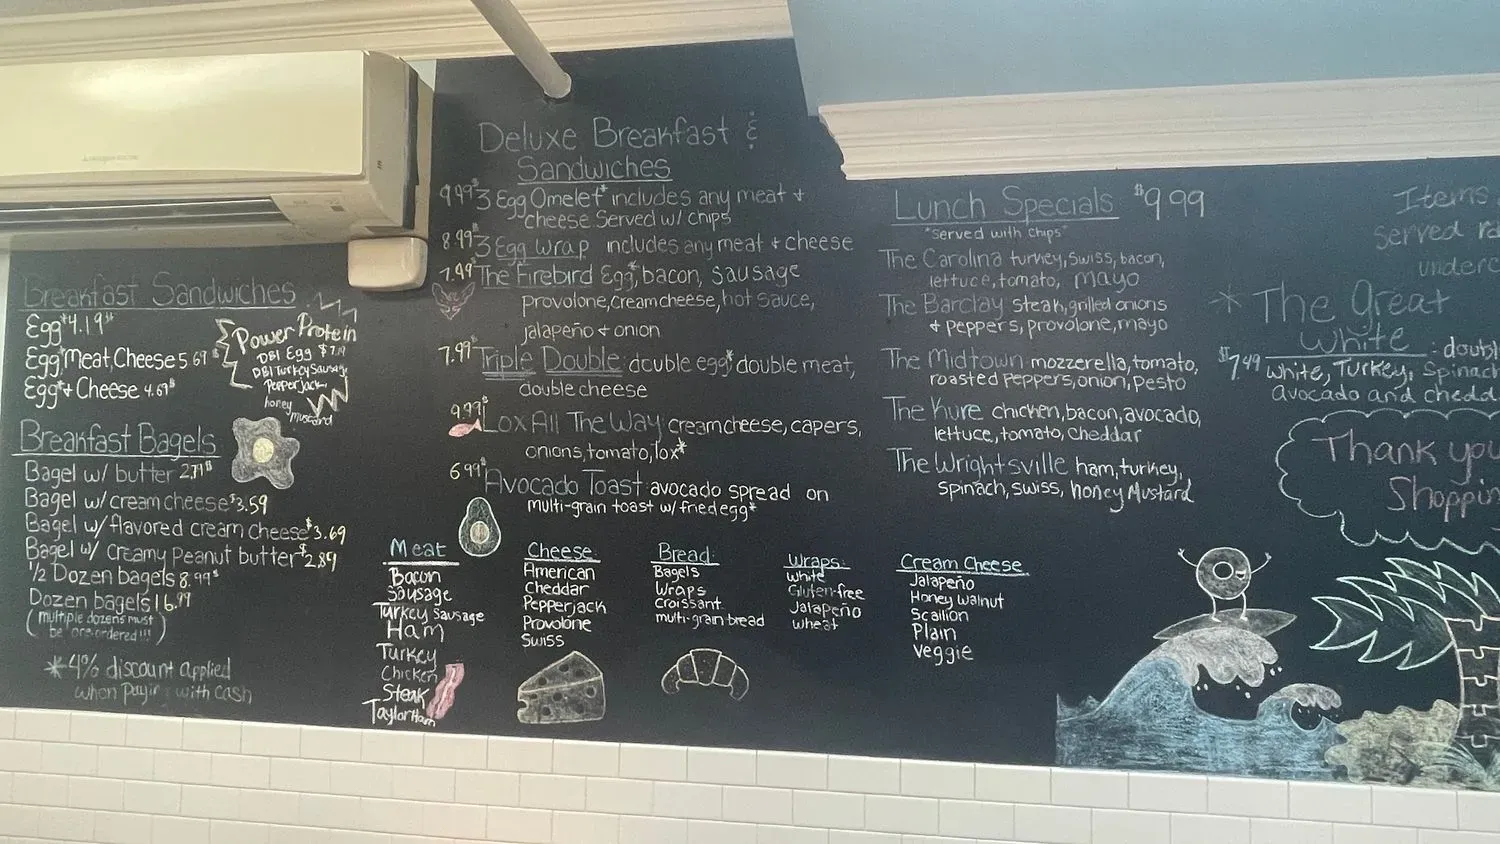 Breakfast Sandwiches
Egg* 4.19$
Egg*, Meat, Cheese 5.69$
Egg* & Cheese 4.69$
Power Protein
DBl Egg $7.19
DBl Turkey Sausage
Pepperjack
honey
mustard
Breakfast Bagels
Bagel w/ butter 2.79$
Bagel w/ cream cheese $3.59
Bagel w/ flavored cream cheese $3.69
Bagel w/ creamy peanut butter $2.89
1/2 Dozen bagels 8.99$
Dozen bagels 16.99
(multiple dozens must
be pre-ordered!!!)
* 4% discount applied
when paying with cash
Deluxe Breakfast &
Sandwiches
9.99$ 3 Egg Omelet* includes any meat +
cheese. Served w/ chips
8.99$ 3 Egg wrap includes any meat + cheese
7.99$ The Firebird Egg*, bacon, sausage
provolone, creamcheese, hot sauce,
jalapeño + onion
7.99$ Triple Double: double egg*, double meat,
double cheese
9.99$ Lox All The Way: creamcheese, capers,
onions, tomato, lox*
6.99$ Avocado Toast: avocado spread on
multi-grain toast w/ fried egg*
Meat
Bacon
Sausage
Turkey Sausage
Ham
Turkey
Chicken
Steak
Taylor Ham
Cheese:
American
Cheddar
Pepperjack
Provolone
Swiss
Bread:
Bagels
Wraps
Croissant
multi-grain bread
Wraps:
White
Gluten-free
Jalapeño
wheat
Cream Cheese
Jalapeño
Honey walnut
Scallion
Plain
Veggie
Lunch Specials $9.99
*served with chips*
The Carolina turkey, swiss, bacon,
lettuce, tomato, mayo
The Barclay steak, grilled onions
+ peppers, provolone, mayo
The Midtown mozzerella, tomato,
roasted peppers, onion, pesto
The Kure chicken, bacon, avocado,
lettuce, tomato, cheddar
The Wrightsville ham, turkey,
spinach, swiss, honey Mustard
Items
served ra
underc
* The Great
White : doubl
$7.49 white, Turkey, Spinach
avocado and chedd
Thank you
Shoppin